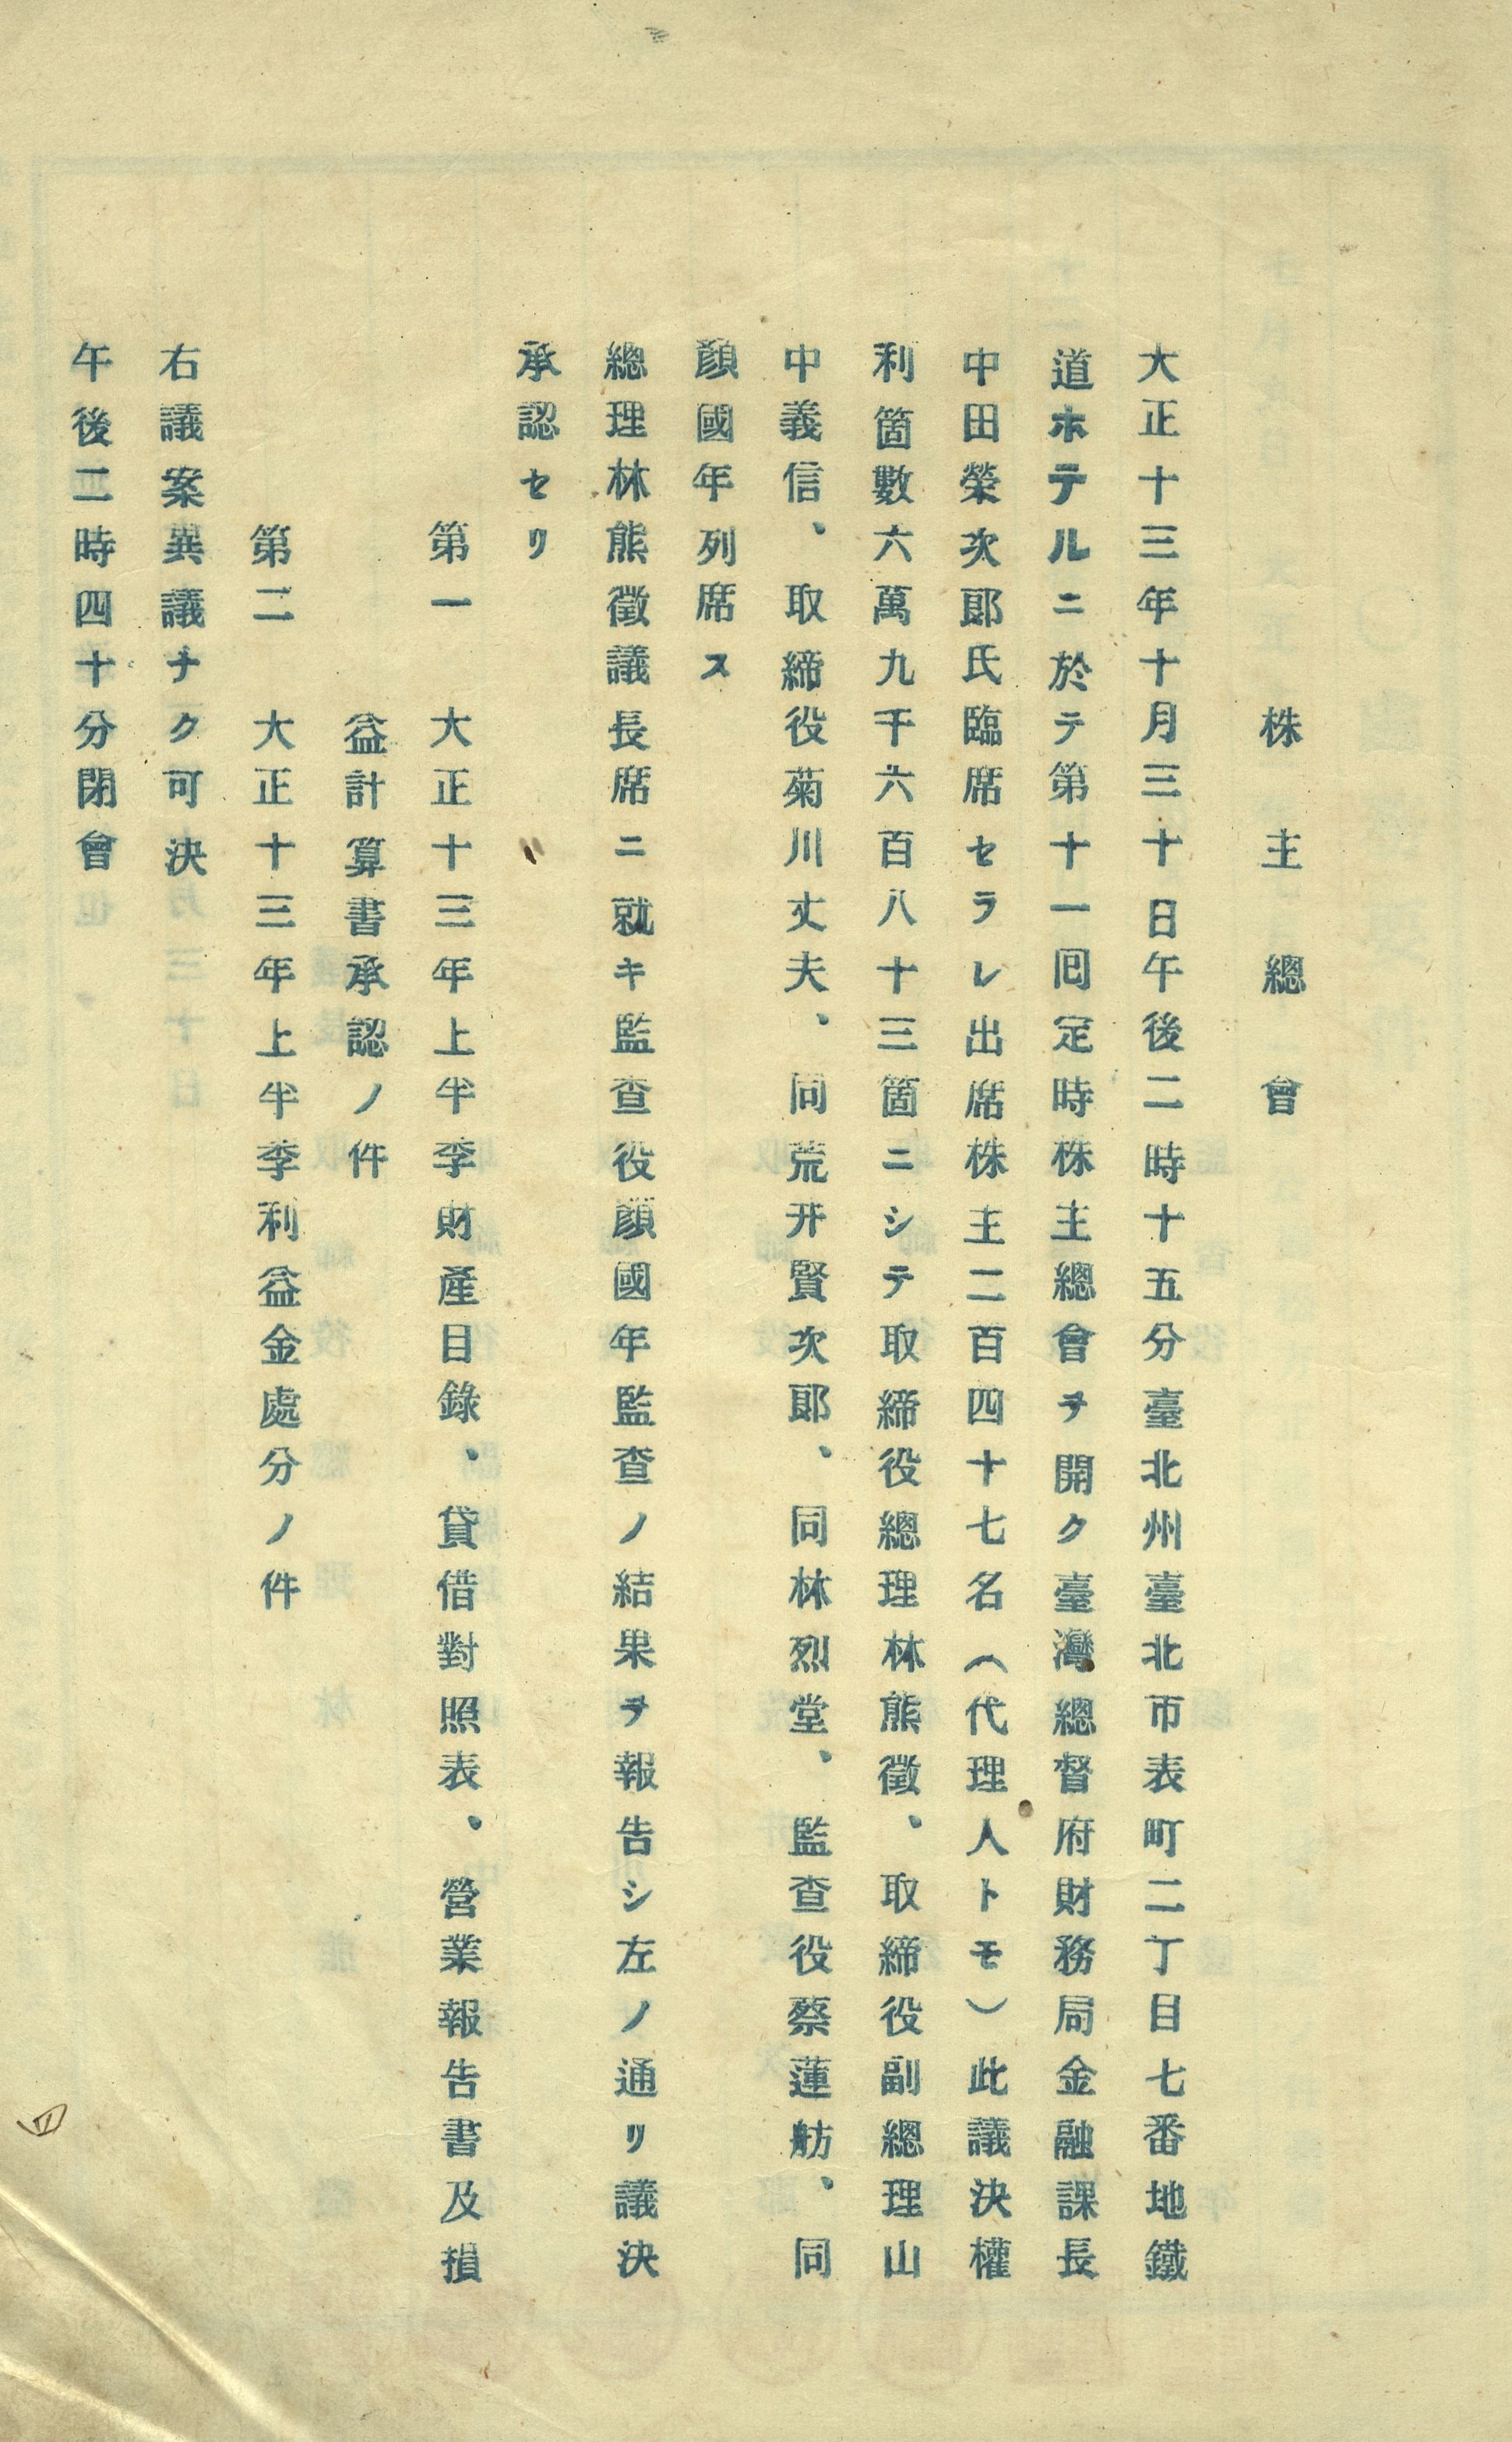 株主總會
大正十三年十月三十日午後二時十五分臺北州臺北市表町二丁目七番地鐵
道ホテルニ於テ第十一囘定時株主總會ヲ開ク臺灣總督府財務局金融課長
中田榮次郎氏臨席セラレ出席株主二百四十七名（代理人トモ）此議決權
利箇數六萬九千六百八十三箇ニシテ取締役總理林熊徵、取締役副總理山
中義信、取締役菊川丈夫、同荒井賢次郎、同林烈堂、監查役蔡蓮舫、同
顏國年列席ス
總理林熊徵議長席ニ就キ監查役顏國年監查ノ結果ヲ報告シ左ノ通リ議決
承認セリ
第一　大正十三年上半季財產目錄、貸借對照表、營業報告書及損
益計算書承認ノ件
第二　大正十三年上半季利益金處分ノ件
右議案異議ナク可決
午後二時四十分閉會
四